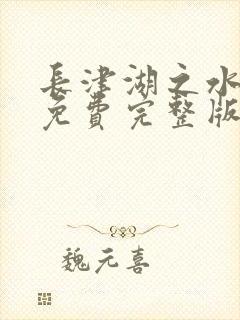 長津湖之水
免費完整版
魏元喜